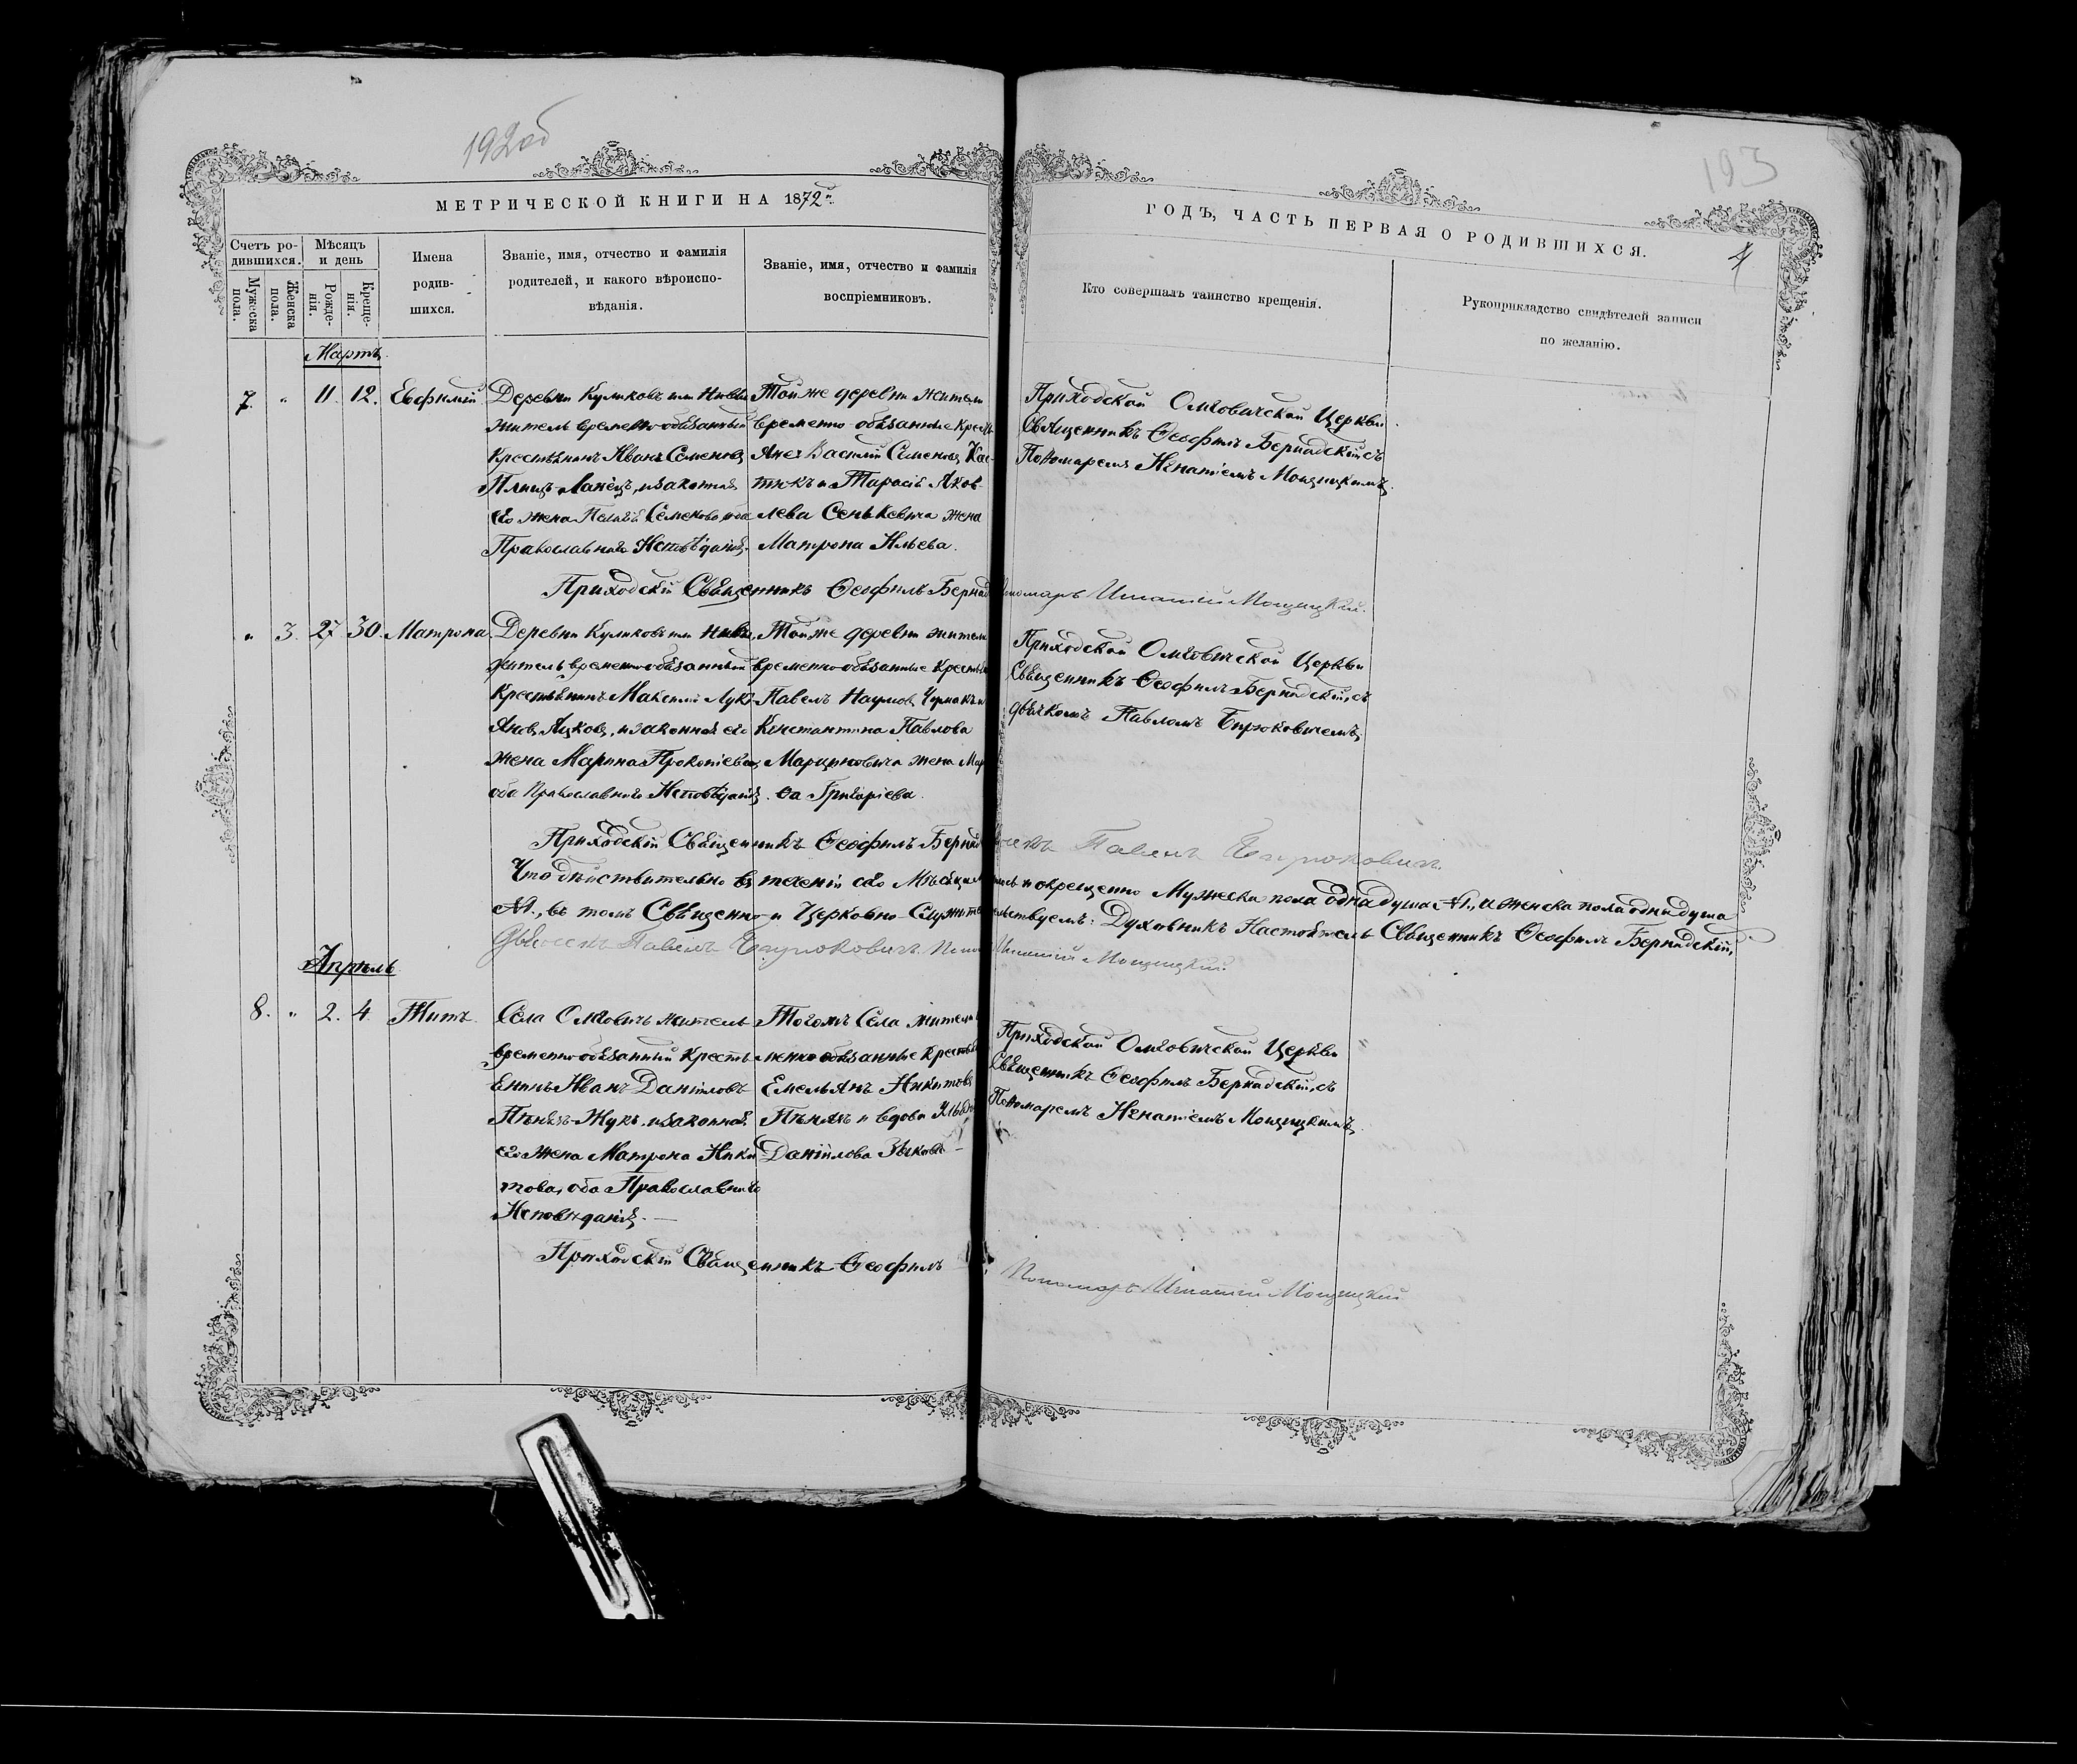 192об
193
МЕТРИЧЕСКОЙ КНИГИ НА 1872й
ГОДЪ, ЧАСТЬ ПЕРВАЯ О РОДИВШИХСЯ.
4
Счетъ ро-
дившихся.
Мужеска
пола.
Женска
пола.
Мѣсяцъ
и день
Рожде-
нія.
Креще-
нія.
Имена
родив-
шихся.
Званіе, имя, отчество и фамилія
родителей, и какого вѣроиспо-
вѣданія.
Званіе, имя, отчество и фамилія
воспріемниковъ.
Кто совершалъ таинство крещенія.
Рукоприкладство свидѣтелей записи
по желанію.
Мартъ
7. " 11. 12. Евфимій
Деревни Куликовъ или
житель временнообязанный
Крестьянинъ Иванъ Семеновъ
законная
его жена
Православнаго Исповѣданія.
Той же деревни жители
временно обязанные Крестъ
Василій Семеновъ
и Тарасія Яков-
лева Сенькевича жена
Матрона Ильева.
Приходской Омговичской Церкви
Священникъ Ѳеофилъ Бернадскій съ
Пономаремъ Игнатіемъ Мощицкимъ.
Приходскій Священникъ Ѳеофилъ Бернад
Игнатій Мощицкій.
" 3. 27 30. Матрона
Деревни Куликовъ или
житель временнообязанный
Крестьянинъ Максимъ Лукі-
яновъ и законная его
жена Марина Прокопіева
оба Православнаго Исповѣданія.
Той же деревни жители
временнообязанные Крестья
Павелъ Наумовъ
Константина Павлова
Марциновича жена Мар
ѳа Григоріева.
Приходской Омговичской Церкви
Священникъ Ѳеофилъ Бернадскій, съ
дьячкомъ Павломъ Бирюковичемъ.
Приходскій Священникъ Ѳеофилъ Бернад
Павелъ Бирюковичъ
Что дѣйствительно въ теченіи сего Мѣсяца и окрещено Мужеска пола одна душа №1., и женска пола одна душа
№1., въ томъ Священно и Церковно-Служит ельствуемъ: Духовникъ Настоятель Священникъ Ѳеофилъ Бернадскій,
Дьячекъ Павелъ Бирюковичъ. Игнатій Мощицкій.
Апрѣль
8. " 2. 4. Титъ
Села Омговичъ житель
временнообязанный Кресть
янинъ Иванъ Даніиловъ
Жукъ, и законная
его жена Матрона Ники
това, оба Православнаго
Исповѣданія.
Тогожъ Села жители
менно обязанные Крестья
Емельянъ Никитовъ
и вдова
Даніилова
Приходской Омговичской Церкви
Священникъ Ѳеофилъ Бернадскій, съ
Пономаремъ Игнатіемъ Мощицкимъ.
Приходскій Священникъ Ѳеофилъ
Пономарь Игнатій Мощицкій